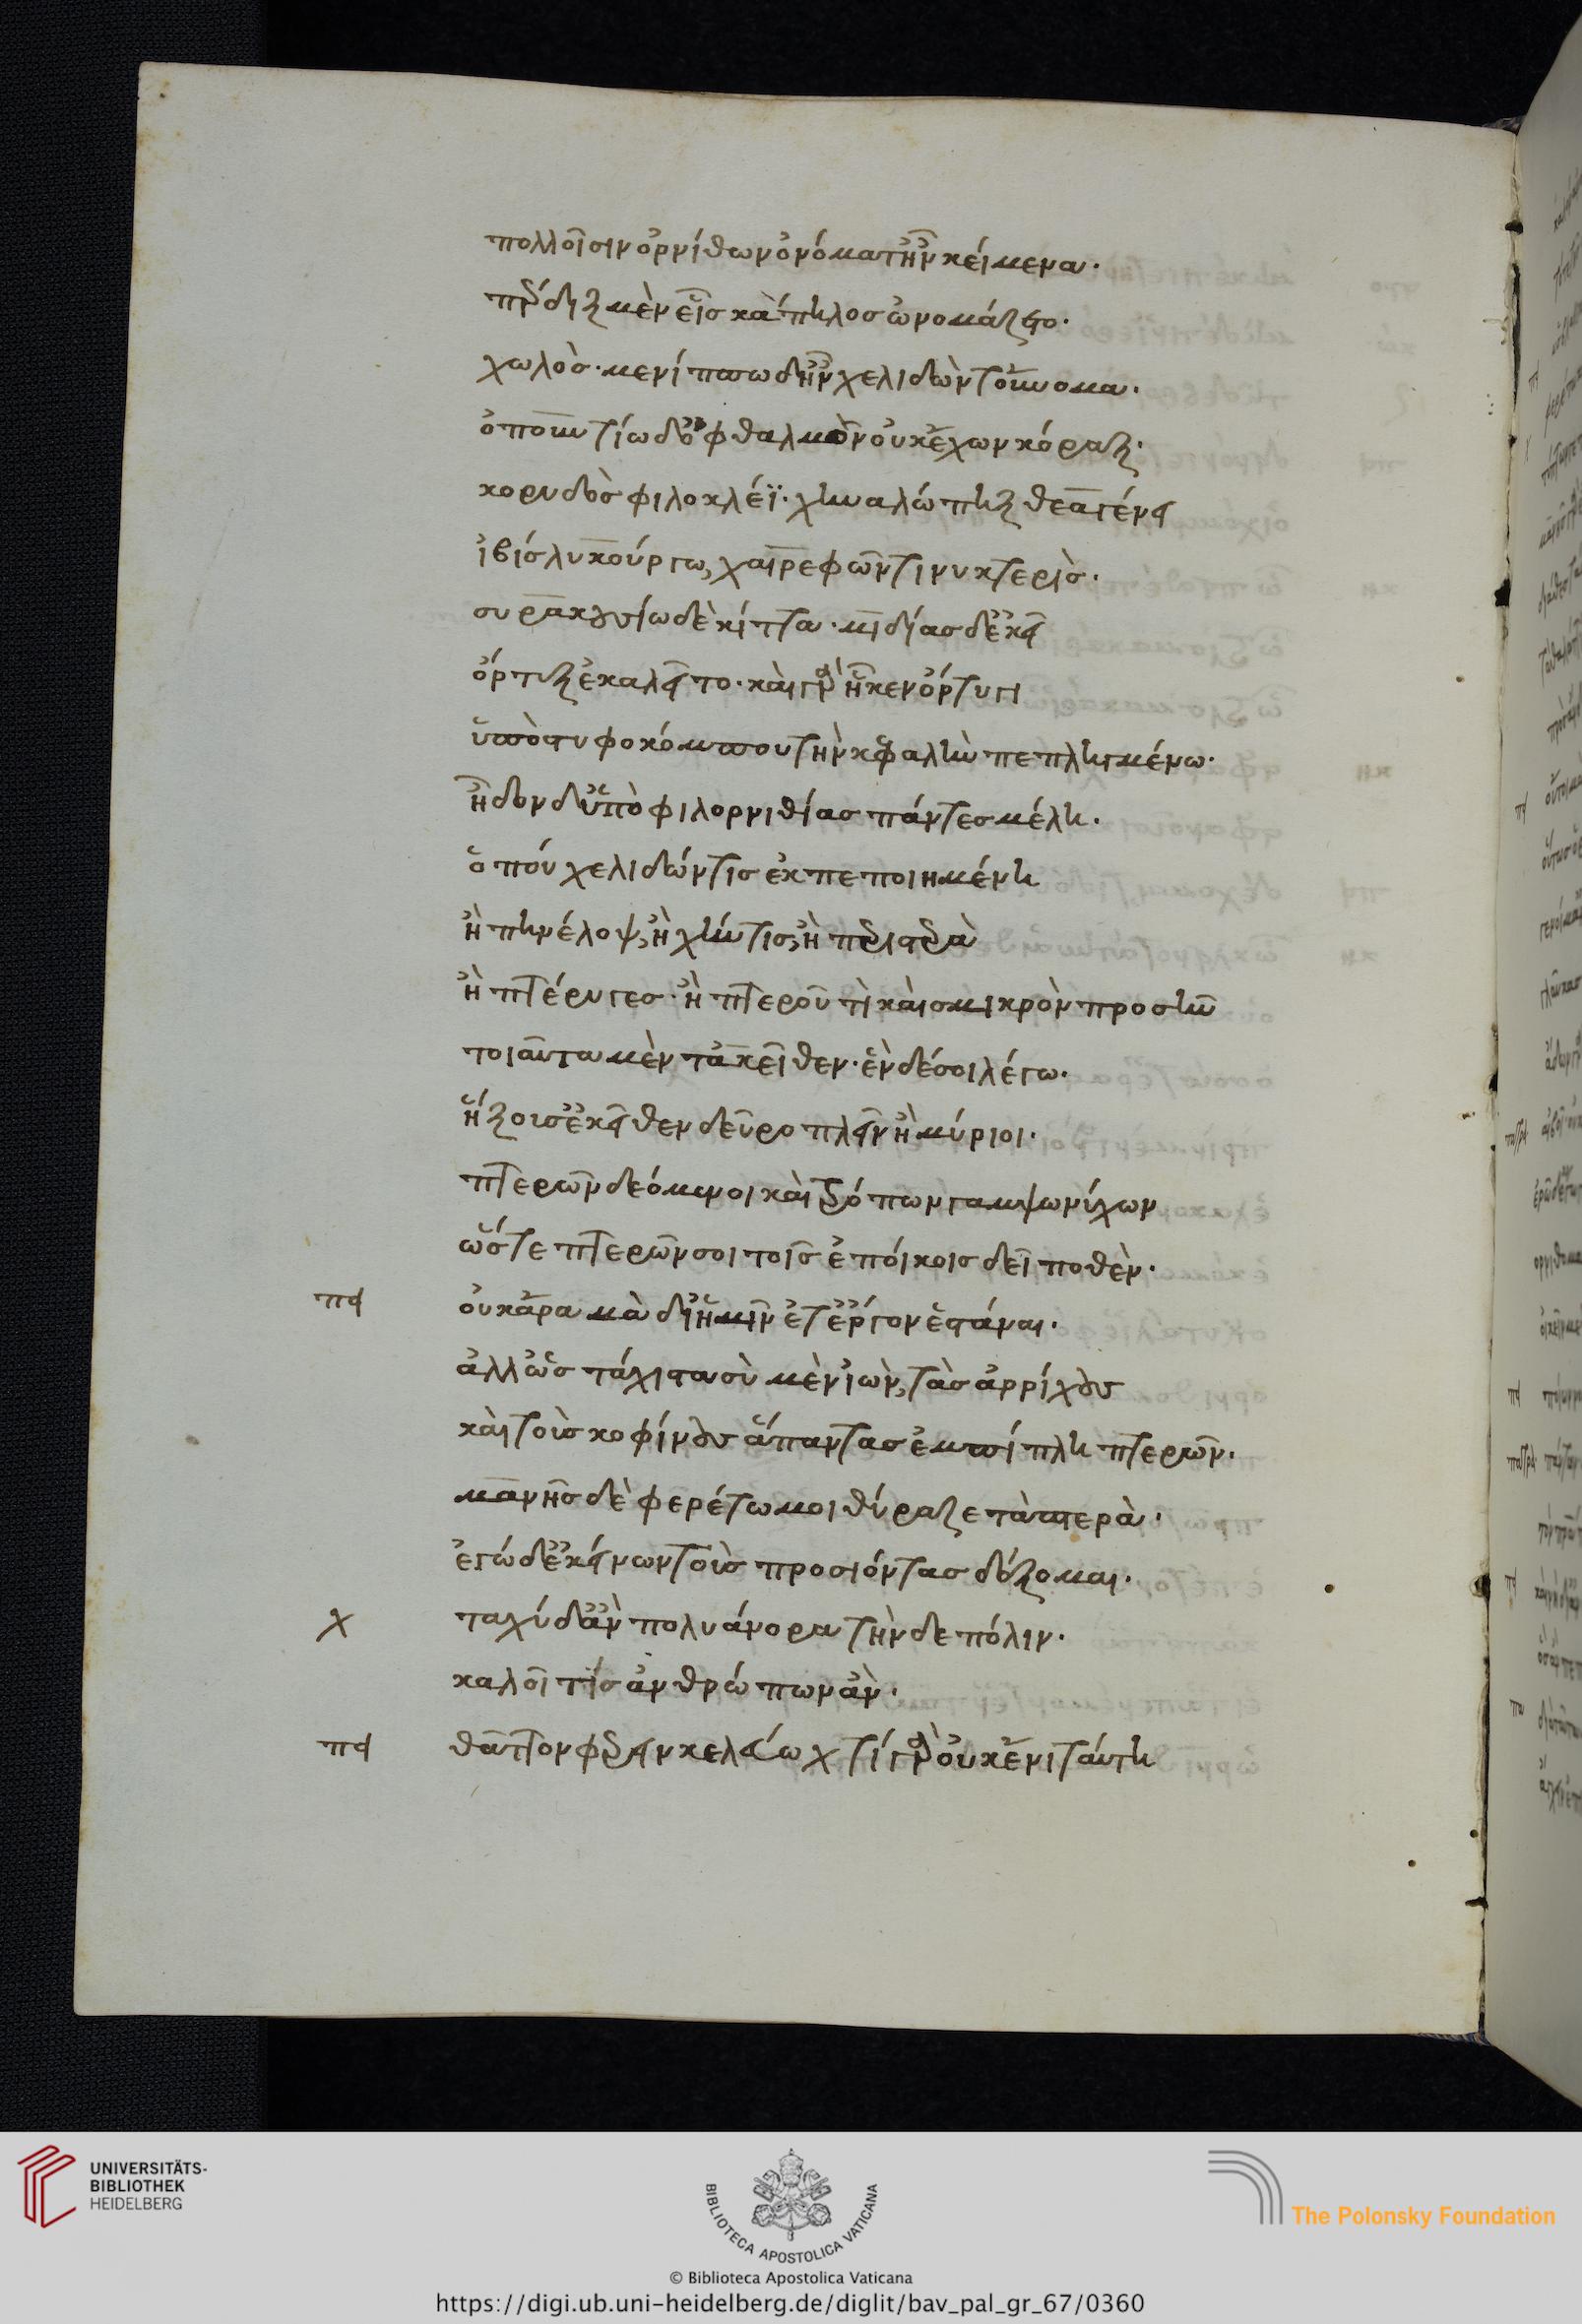 πολλοῖσιν ὀρνίθων ὀνόματ' ἦν κείμενα·
πέρδιξ μὲν εἷς κάπηλος ὠνομάζετο·
χωλός· μενίππω δ' ἦν χελιδὼν τοὔνομα·
ὀπουντίω δ' ὀφθαλμὸν οὐκ ἔχων κόραξ·
κορυδὸς φιλοκλέϊ· χηναλώπηξ θεαγένει
ἶβις λυκούργω, χαιρεφῶντι νυκτερίς·
συρακουσίω δὲ κίττα· μιδίας δ' ἐκεῖ
ὄρτυξ ἐκαλεῖτο· καὶ γὰρ ἧκεν ὄρτυγι
ὑπὸ στυφοκόμπου τὴν κεφαλὴν πεπληγμένω·
ᾖδον δ' ὑπὸ φιλορνιθίας πάντες μέλη·
ὅπου χελιδών τις ἐκπεποιημένη
ἢ πηνέλοψ, ἢ χήν τις, ἢ περιστερὰ
ἢ πτέρυγες· ἢ πτεροῦ τι καὶ σμικρὸν προσῆν
τοιαῦτα μὲν τἀκεῖθεν· ἓν δέ σοι λέγω·
ἥξουσ' ἐκεῖθεν δεῦρο πλεῖν ἢ μύριοι·
πτερῶν δεόμενοι καὶ τρόπων γαμψωνύχων
ὥστε πτερῶν σοι τοῖς ἐποίκοις δεῖ ποθὲν·
πει οὐκ ἄρα μὰ δί' ἡμῖν ἔτ' ἔργον ἑστάναι·
ἀλλ' ὡς τάχιστα σὺ μὲν ἰὼν, τὰς ἀρρίχους
καὶ τοὺς κοφίνους ἅπαντας ἐμπίπλη πτερῶν·
μανῆς δὲ φερέτω μοι θύραζε τὰ πτερὰ·
ἐγὼ δ' ἐκείνων τοὺς προσιόντας δέξομαι·
χ ταχὺ δ' ἂν πολυάνορα τήνδε πόλιν·
καλοῖ τις ἀνθρώπων ἂν·
πει θᾶττον φέρειν κελεύω χ τί γὰρ οὐκ ἔνι ταύτη
UNIVERSITÄTS-
BIBLIOTHEK
HEIDELBERG
BIBLIOTECA APOSTOLICA VATICANA
The Polonsky Foundation
© Biblioteca Apostolica Vaticana
https://digi.ub.uni-heidelberg.de/diglit/bav_pal_gr_67/0360